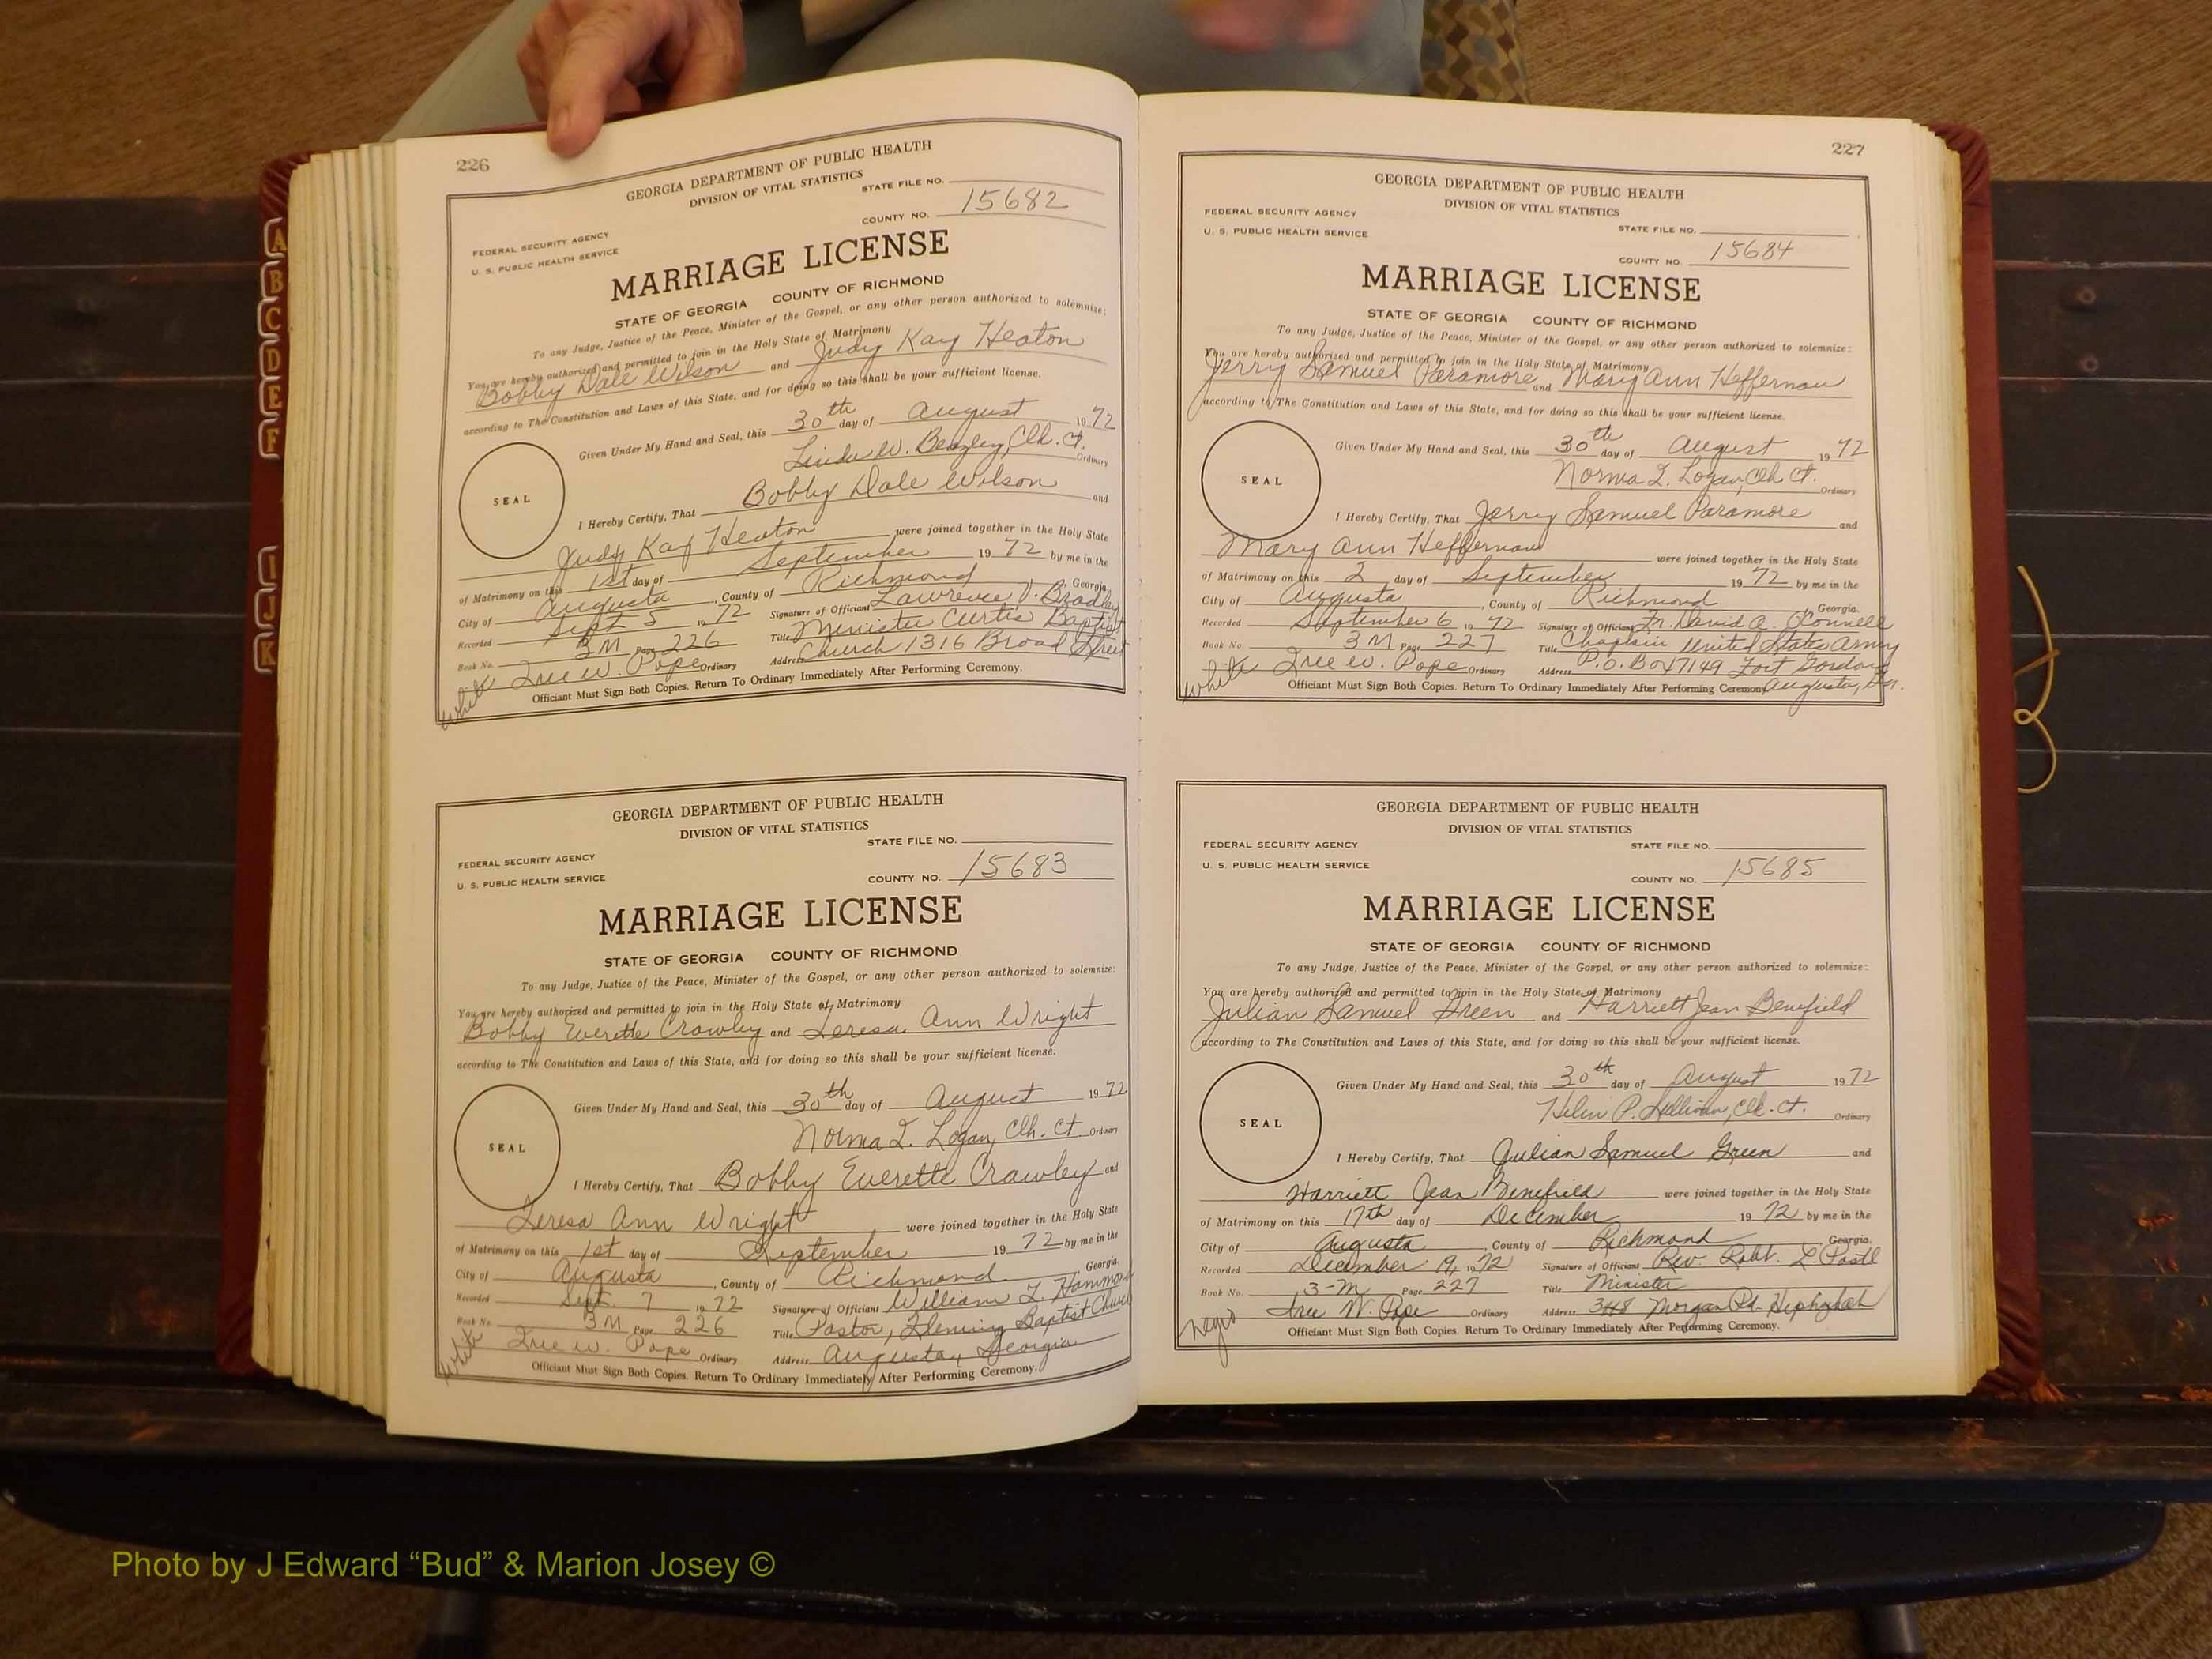 226
GEORGIA DEPARTMENT OF PUBLIC HEALTH
DIVISION OF VITAL STATISTICS
STATE FILE NO.
COUNTY NO. 15682
FEDERAL SECURITY AGENCY
U. S. PUBLIC HEALTH SERVICE
MARRIAGE LICENSE
STATE OF GEORGIA COUNTY OF RICHMOND
To any Judge, Justice of the Peace, Minister of the Gospel, or any other person authorized to solemnize:
You are hereby authorized and permitted to join in the Holy State of Matrimony
Bobby Dale Wilson and Judy Kay Heaton
according to The Constitution and Laws of this State, and for doing so this shall be your sufficient license.
Given Under My Hand and Seal, this 30th day of August 1972
Linda W. Beazley, Clk. Ct. Ordinary
SEAL
I Hereby Certify, That Bobby Dale Wilson and
Judy Kay Heaton were joined together in the Holy State
of Matrimony on this 1st day of September 1972 by me in the
City of Augusta, County of Richmond, Georgia.
Recorded Sept 5 1972 Signature of Officiant Lawrence V. Bradley
Book No. 3M Page 226 Title Minister Curtis Baptist
Inee W. Pope Ordinary Address Church 1316 Broad Street
white
Officiant Must Sign Both Copies. Return To Ordinary Immediately After Performing Ceremony.
GEORGIA DEPARTMENT OF PUBLIC HEALTH
DIVISION OF VITAL STATISTICS
STATE FILE NO.
FEDERAL SECURITY AGENCY
U. S. PUBLIC HEALTH SERVICE
COUNTY NO. 15683
MARRIAGE LICENSE
STATE OF GEORGIA COUNTY OF RICHMOND
To any Judge, Justice of the Peace, Minister of the Gospel, or any other person authorized to solemnize:
You are hereby authorized and permitted to join in the Holy State of Matrimony
Bobby Everette Crawley and Teresa Ann Wright
according to The Constitution and Laws of this State, and for doing so this shall be your sufficient license.
Given Under My Hand and Seal, this 30th day of August 1972
Norma I. Logan, Clk. Ct. Ordinary
SEAL
I Hereby Certify, That Bobby Everette Crawley and
Teresa Ann Wright were joined together in the Holy State
of Matrimony on this 1st day of September 1972 by me in the
City of Augusta, County of Richmond Georgia
Recorded Sept. 7 1972 Signature of Officiant William L. Hammond
Book No. 3M Page 226 Title Pastor, Fleming Baptist Church
Inee W. Pope Ordinary Address Augusta, Georgia
white
Officiant Must Sign Both Copies. Return To Ordinary Immediately After Performing Ceremony.
227
GEORGIA DEPARTMENT OF PUBLIC HEALTH
DIVISION OF VITAL STATISTICS
FEDERAL SECURITY AGENCY
U. S. PUBLIC HEALTH SERVICE
STATE FILE NO.
COUNTY NO. 15684
MARRIAGE LICENSE
STATE OF GEORGIA COUNTY OF RICHMOND
To any Judge, Justice of the Peace, Minister of the Gospel, or any other person authorized to solemnize:
You are hereby authorized and permitted to join in the Holy State of Matrimony
Jerry Samuel Paramore and Mary Ann Heffernan
according to The Constitution and Laws of this State, and for doing so this shall be your sufficient license.
Given Under My Hand and Seal, this 30th day of August 1972
Norma I. Logan, Clk Ct. Ordinary
SEAL
I Hereby Certify, That Jerry Samuel Paramore and
Mary Ann Heffernan were joined together in the Holy State
of Matrimony on this 2 day of September 1972 by me in the
City of Augusta, County of Richmond, Georgia.
Recorded September 6 1972 Signature of Officiant Fr. David A. O'Connell
Book No. 3M Page 227 Title Chaplain United State Army
Inee W. Pope Ordinary Address P.O. Box 7149 Fort Gordon
white
Officiant Must Sign Both Copies. Return To Ordinary Immediately After Performing Ceremony. Augusta, Ga.
GEORGIA DEPARTMENT OF PUBLIC HEALTH
DIVISION OF VITAL STATISTICS
FEDERAL SECURITY AGENCY
STATE FILE NO.
U. S. PUBLIC HEALTH SERVICE
COUNTY NO. 15685
MARRIAGE LICENSE
STATE OF GEORGIA COUNTY OF RICHMOND
To any Judge, Justice of the Peace, Minister of the Gospel, or any other person authorized to solemnize:
You are hereby authorized and permitted to join in the Holy State of Matrimony
Julian Samuel Green and Harriett Jean Benefield
according to The Constitution and Laws of this State, and for doing so this shall be your sufficient license.
Given Under My Hand and Seal, this 30th day of August 1972
Helen P. Clk. Ct. Ordinary
SEAL
I Hereby Certify, That Julian Samuel Green and
Harriett Jean Benefield were joined together in the Holy State
of Matrimony on this 17th day of December 1972 by me in the
City of Augusta, County of Richmond, Georgia.
Recorded December 19, 1972 Signature of Officiant Rev. Robt. L.
Book No. 3-M Page 227 Title Minister
Inee W. Pope Ordinary Address Morgan Rd. Hephzibah
negro
Officiant Must Sign Both Copies. Return To Ordinary Immediately After Performing Ceremony.
A
B
C
D
E
F
I
J
K
Photo by J Edward “Bud” & Marion Josey ©